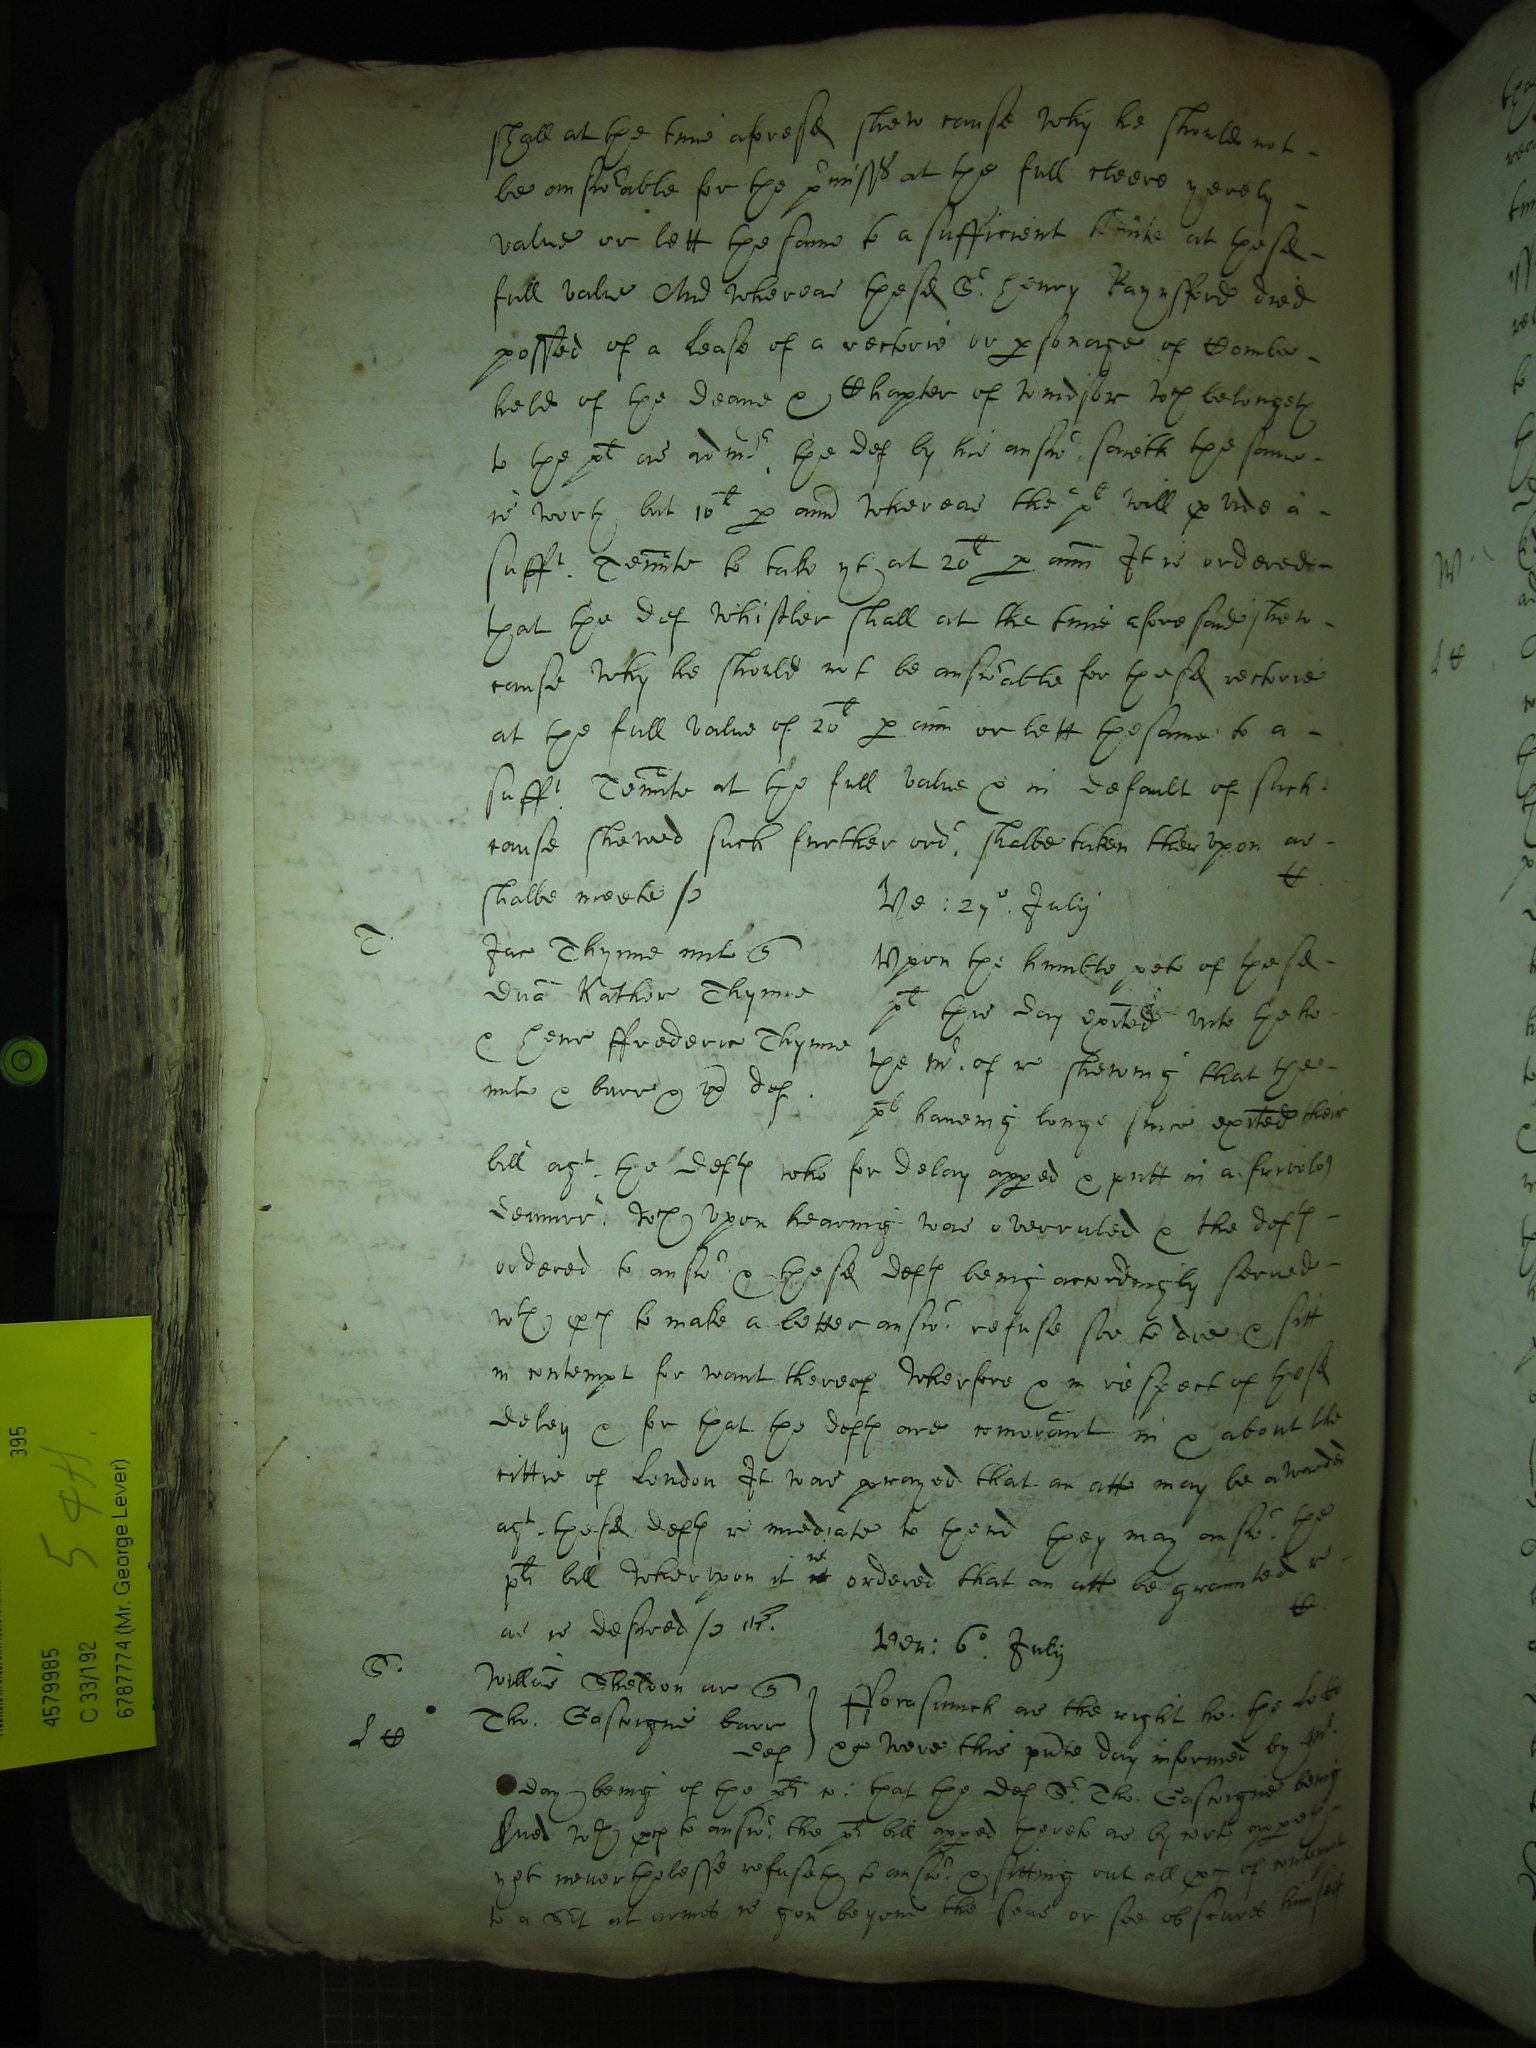 shall at the time aforesd shew cause why he should not -
be answable for the pmisses at the full cleere yerely -
value or lett the same to a sufficient tennte at the sd -
full value And whereas the sd Sr. Henry Raynsford died
possed of a lease of a rectorie or psonage of Combe -
held of the Deane & Chapter of Windsor wch belongeth
to the plt as admr. the def by his answr. saieth the same -
is worth but 10l p ann whereas the plt will pvide a -
sufft. Tennte to take yt at 20l p ann It is ordered -
that the def Whistler shall at the time aforesaid shew -
cause why he should not be answable for the sd rectorie
at the full value of 20l p ann or lett the same to a -
sufft. Tennte at the full value & in default of such
cause shewed such further ordr. shalbe taken therupon as -
shalbe meete /
C.
Ve : 27o. July
T.
Jac Thynne mil
Dna Kather Thynne
& Henr ffrederic Thynne
mil & barr & ux def.
Upon the humble peto of the sd -
plt this day exited unto the ho -
the Mr. of re shewing that the -
plt haveing longe since exited their
bill agt. the defts who for delay apped & putt in a frivolos
demurr. wch upon hearing was overruled & the defts -
ordered to answr & the sd defts being accordingly served -
wth pces to make a better answr. refuse soe to doe & sitt
in contempt for want thereof Wherfore & in respect of the sd
delay & for that the defts are comorant in & about the
cittie of London It was prayed that an atte may be awarded
agt. the sd defts imediate to thend they may answr. the
plts bill Wherupon it is ordered that an att be graunted
as is desired /
C.
Ven: 6o. July
S.
L C
Willus Sheldon ar
Tho. Gascoigne barr
def
fforasmuch as the right ho. the Lo
were this pnte day informed by Mr.
day being of the plts co: that the def Sr. Tho. Gascoigne being
sued wth pces to answr. the plts bill apped thereto as by cert appeth -
yet neverthelesse refuseth to answr. & sitting out all pces of contempt
to a Srt at armes is gon beyond the seas or soe obscures himself
395
54H.
4579985
C 33/192
6787774 (Mr. George Lever)